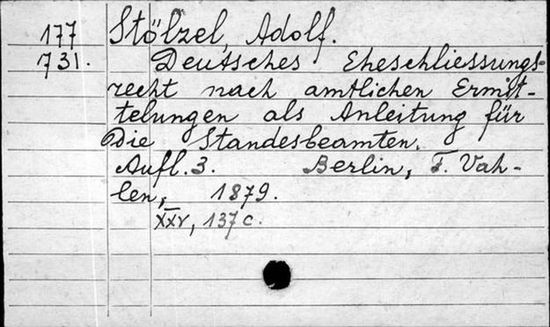 177 Stölzel, Adolf.
731. Deutsches Eheschliessungs-
recht nach amtlichen Ermit-
telungen als Anleitung für
die Standesbeamten.
Aufl. 3. Berlin, F. Vah-
len, 1879.
XXV, 137 c.